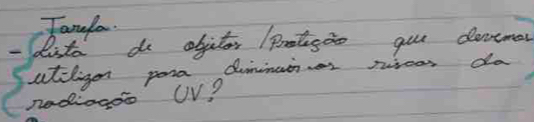 Tarefa.
- Lista de objetos / Proteção que devemos
utilizar para diminuir os riscos da
radiação UV?